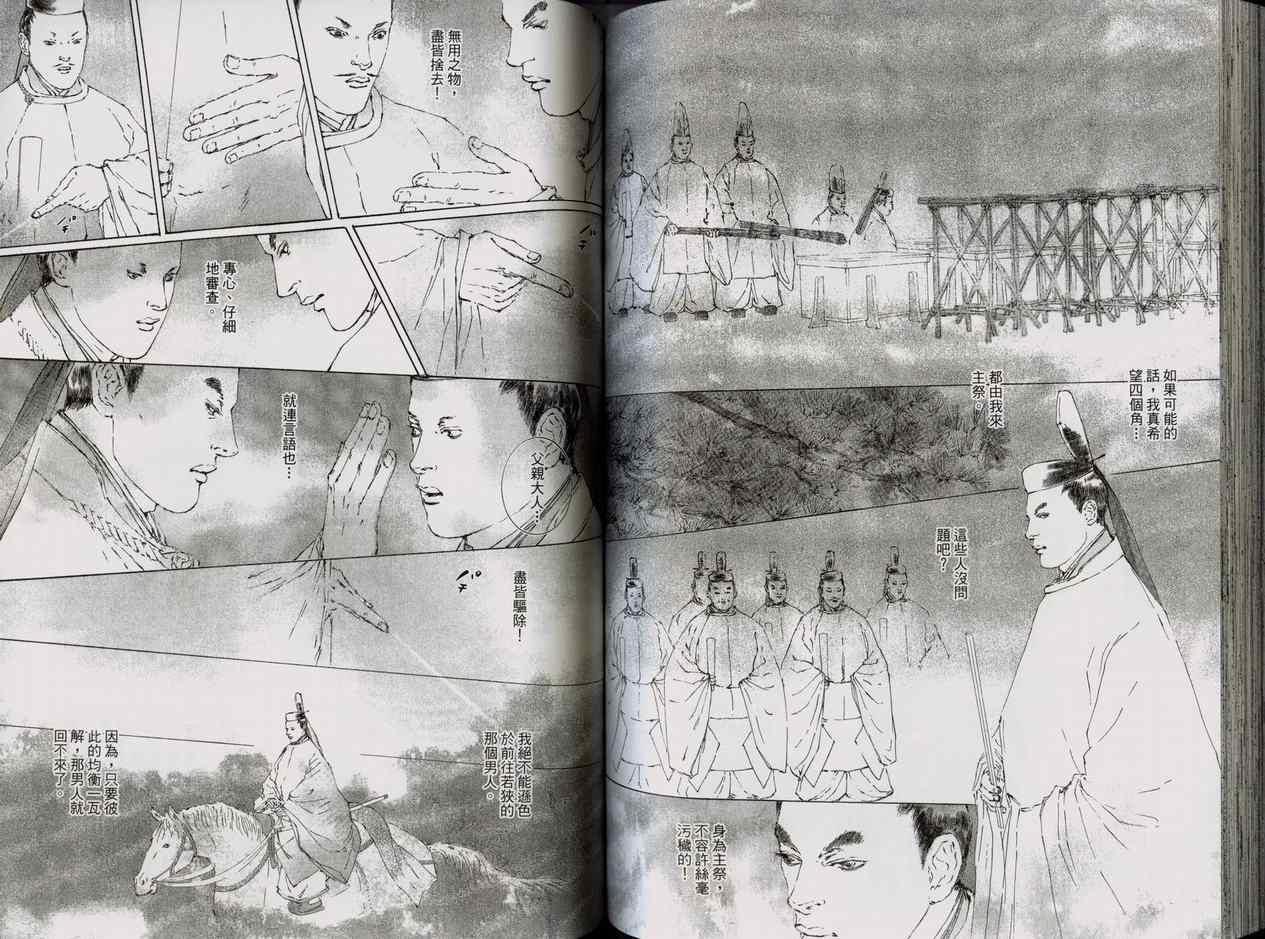 如果可能的
話，我真希
望四個角…
都由我來
主祭。
這些人沒問
題吧？
身為主祭，
不容許絲毫
污穢的！
無用之物，
盡皆捨去！
專心、仔細
地審查。
父親大人…
就連言語也…
盡皆驅除！
我絕不能遜色
於前往若狹的
那個男人。
因為，只要彼
此的均衡一瓦
解，那男人就
回不來了。